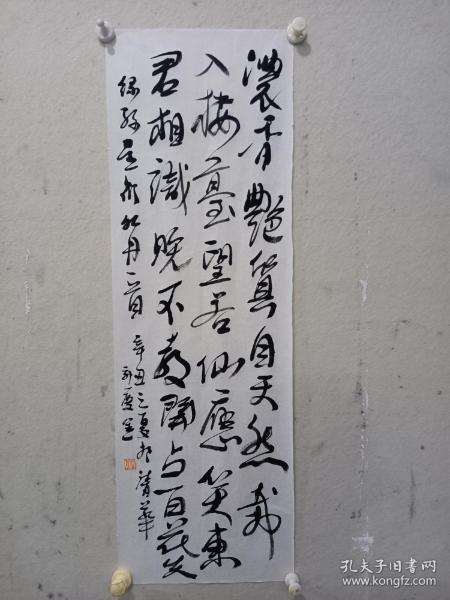 濃香艷質自天然栽
入樓臺望若仙應笑東
君相識晚不教開占百花先
牡丹一首 辛丑之夏於清華
孔夫子旧书网
www.kongfz.com